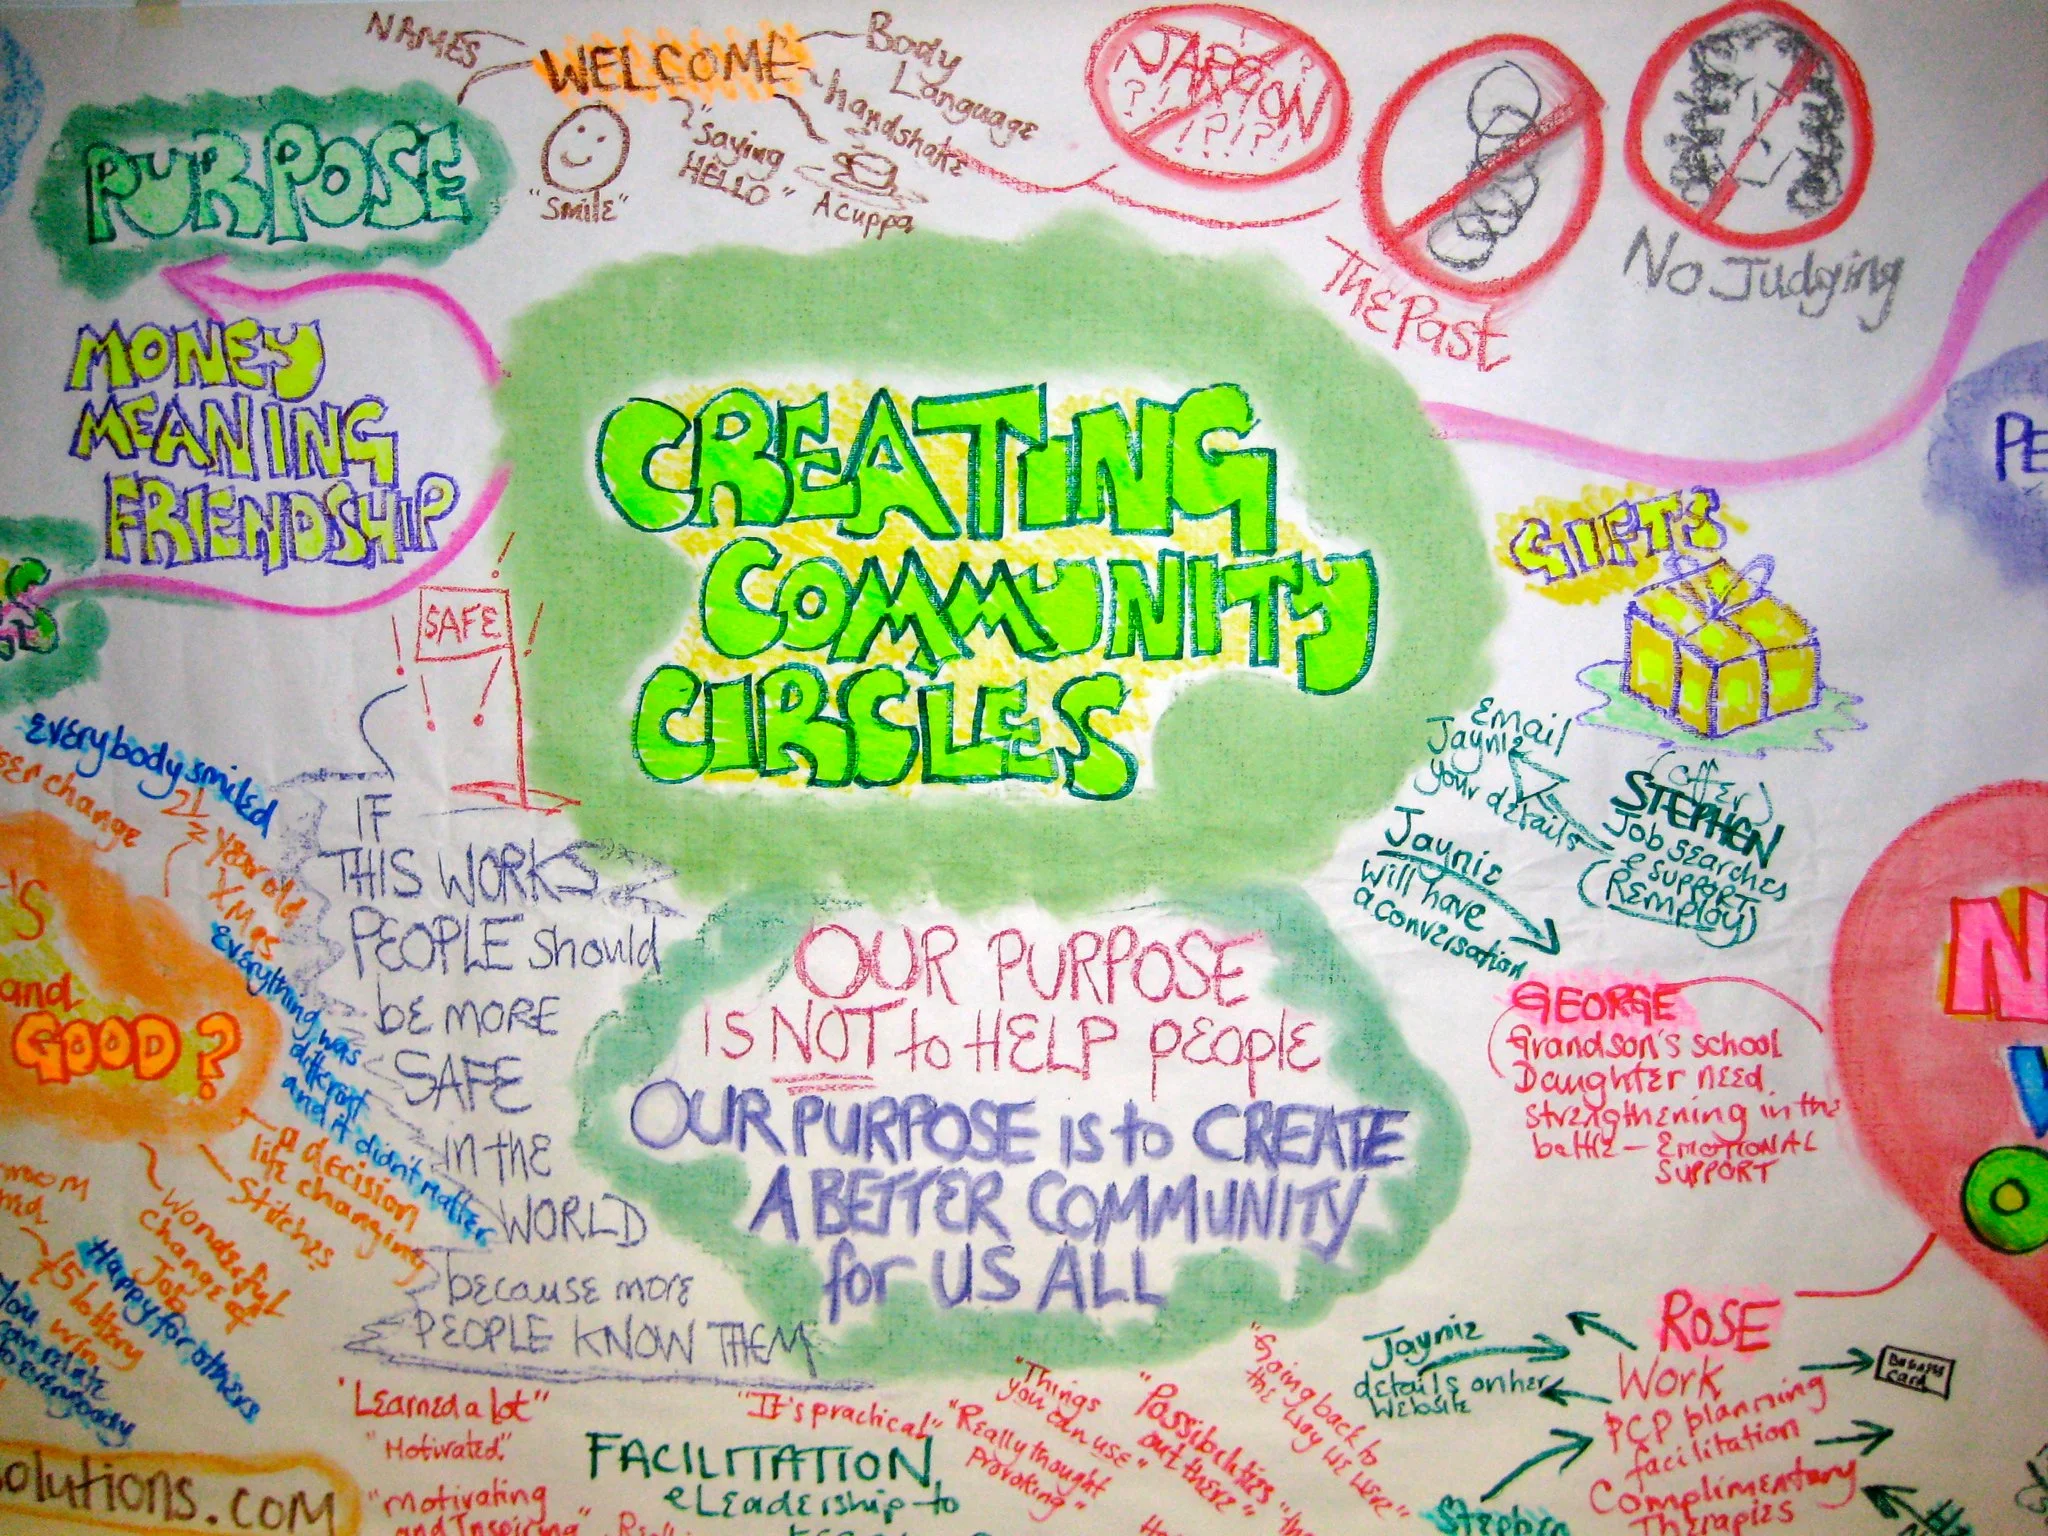 NAMES
WELCOME
Body
Language
handshake
"Saying
HELLO"
"Smile"
A cuppa
JARGON
???!?!?!
The Past
No Judging
PURPOSE
MONEY
MEANING
FRIENDSHIP
CREATING
COMMUNITY
CIRCLES
SAFE
GIFTS
Email
Jaynie
your details
(offer)
STEPHEN
Job searches
& support
(Remploy)
Jaynie
will have
a conversation
GEORGE
Grandson's school
Daughter need
strengthening in the
battle – EMOTIONAL
SUPPORT
IF
THIS WORKS
PEOPLE should
be MORE
SAFE
in the
WORLD
because more
PEOPLE KNOW THEM
OUR PURPOSE
IS NOT to HELP people
OUR PURPOSE is to CREATE
A BETTER COMMUNITY
for US ALL
Everybody smiled
change
21
year old
Xmas
Everything was
different
and it didn't matter
and
GOOD?
a decision
life changing
Stitches
Wonderful
change of
Job
£5 lottery
win
Happy for others
You
can relate
to everybody
solutions.com
"Learned a lot"
"Motivated"
"motivating
and Inspiring"
"It's practical"
"Really thought
provoking"
"Things
you can use"
"Possibilities
out there"
"Going back to
the way we were"
FACILITATION
& Leadership to
ROSE
Work
PCP planning
facilitation
Complimentary
Therapies
Jaynie
details on her
website
Business
Card
Stephen